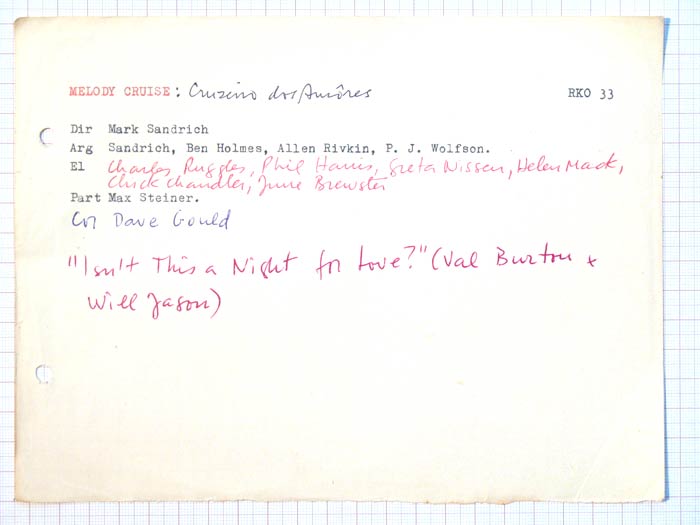 MELODY CRUISE: Cruzeiro dos Amôres RKO 33
Dir Mark Sandrich
Arg Sandrich, Ben Holmes, Allen Rivkin, P. J. Wolfson.
El Charles Ruggles, Phil Harris, Greta Nissen, Helen Mack,
Chick Chandler, June Brewster
Part Max Steiner.
Cor Dave Gould
"Isn't This a Night for Love?" (Val Burton +
Will Jason)